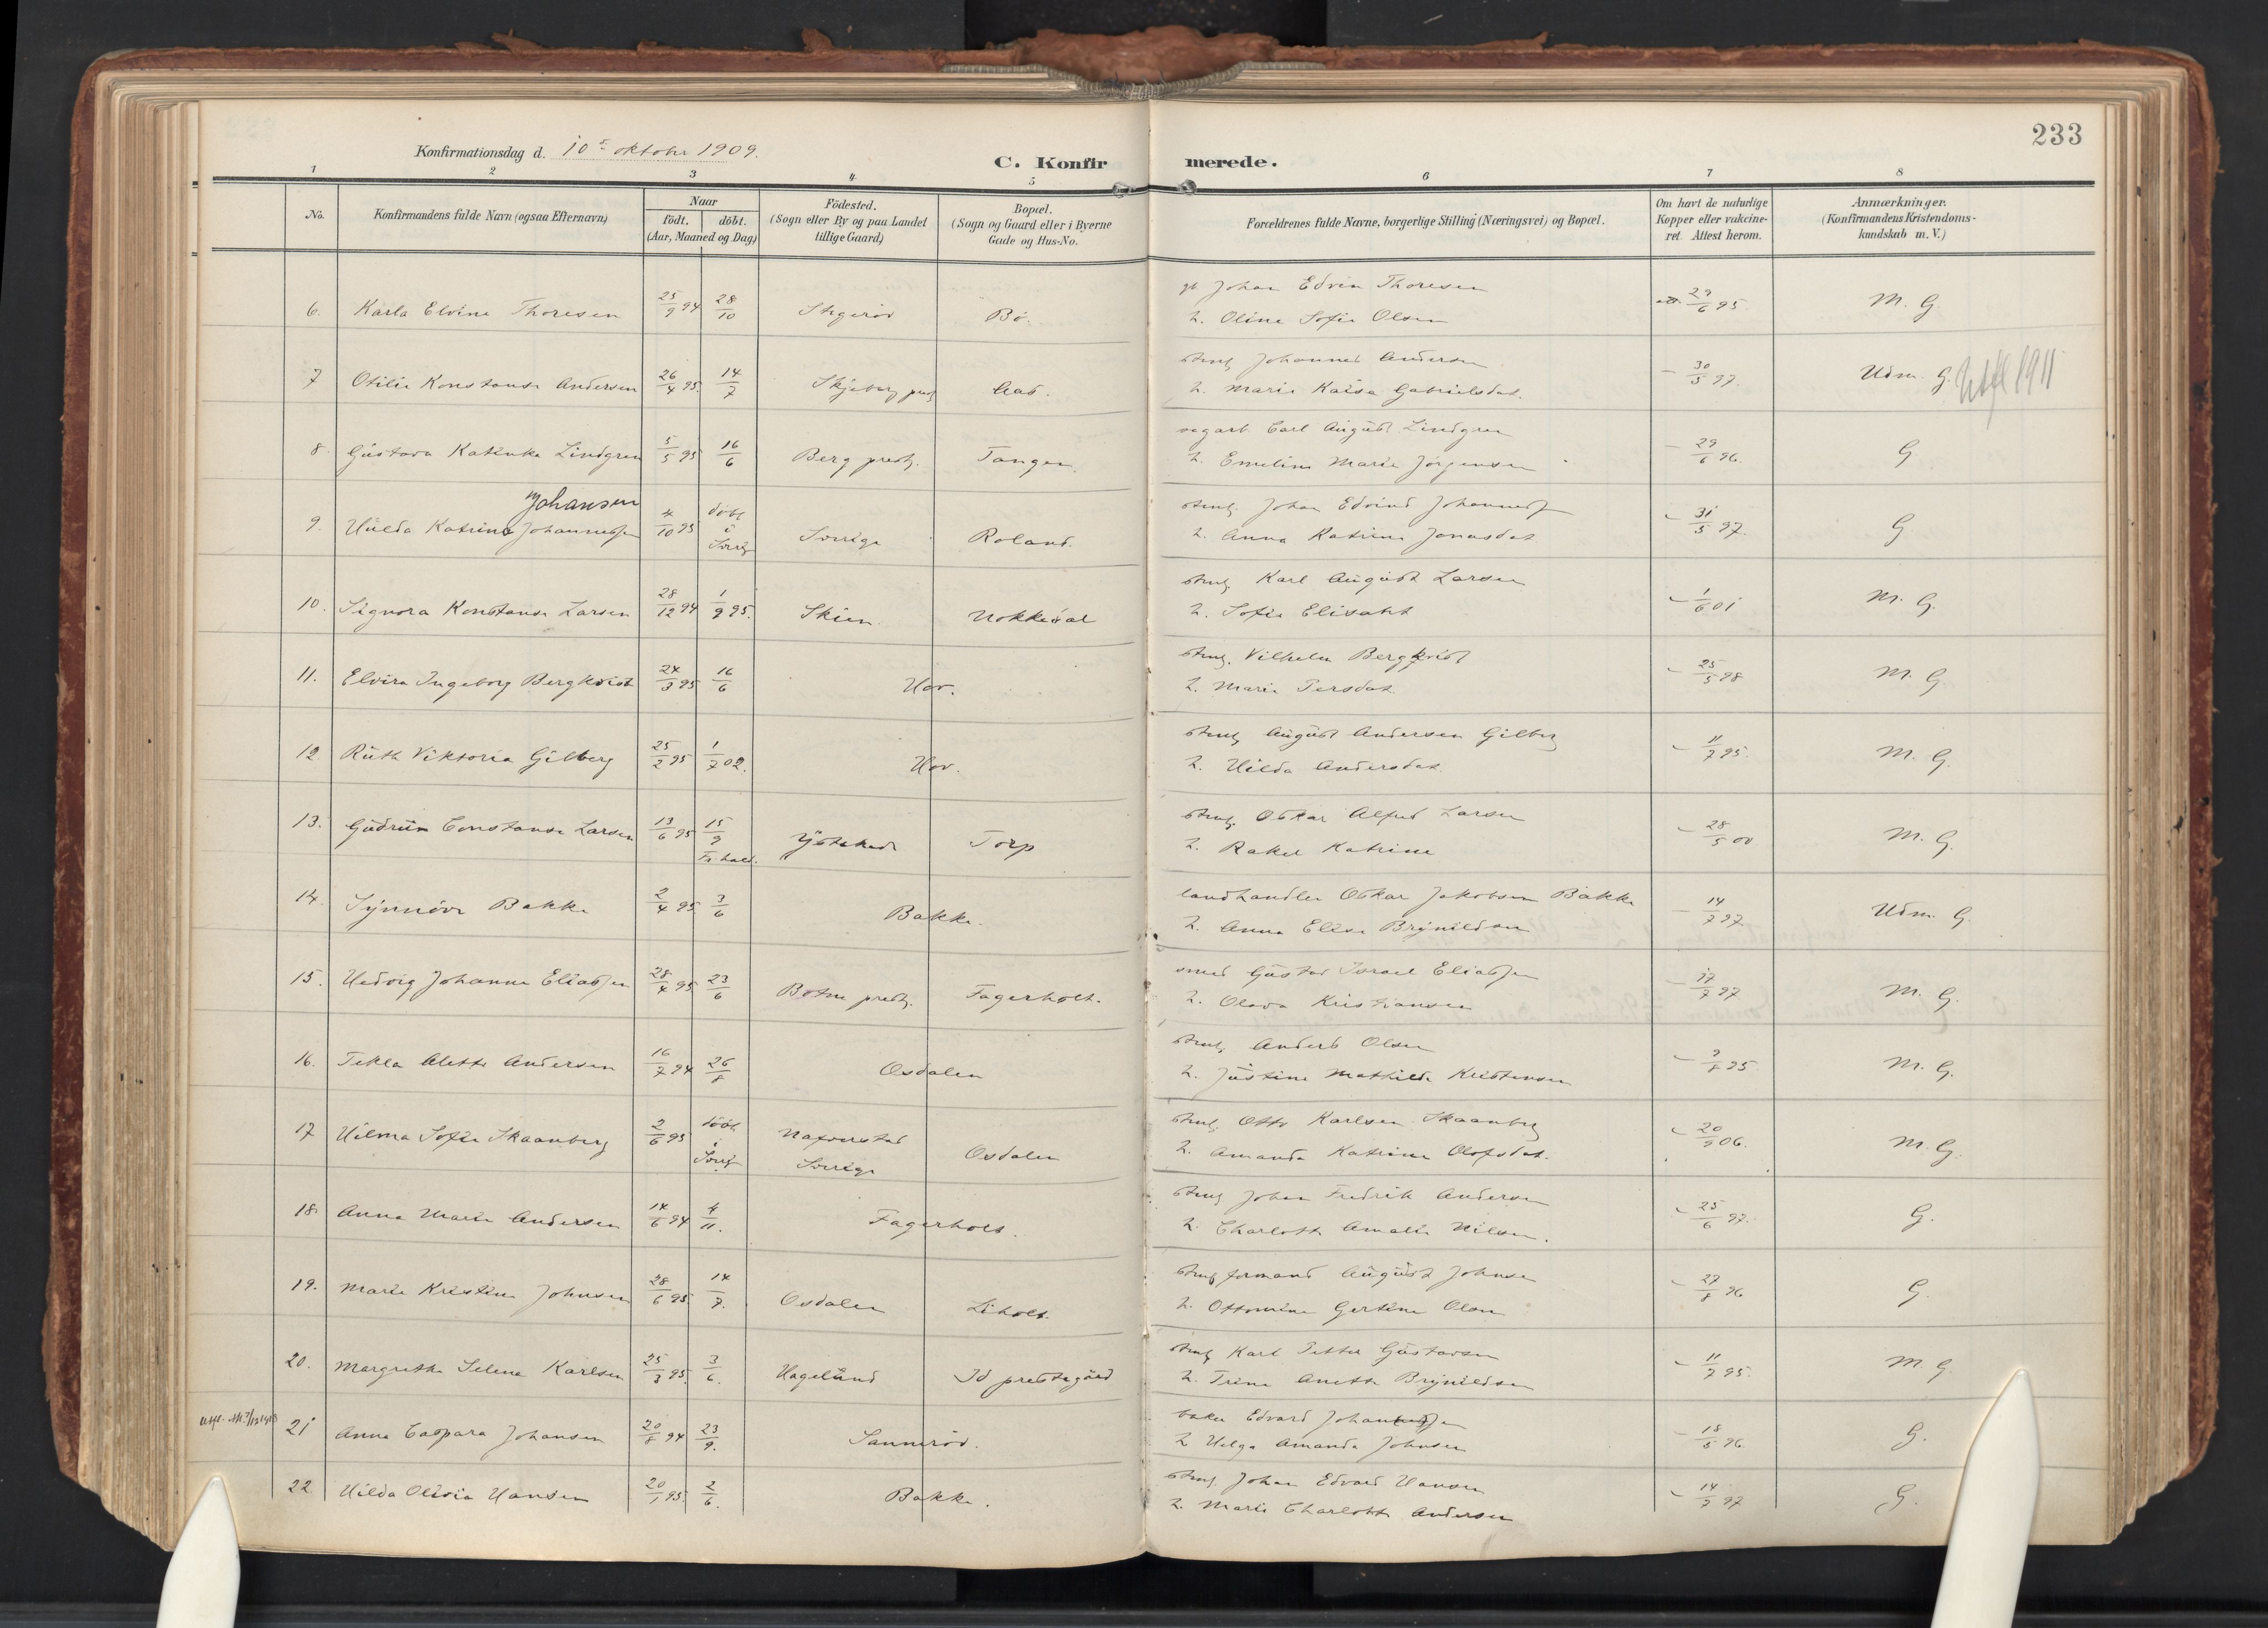 233
Konfirmationsdag d. 10de oktober 1909.
C. Konfirmerede.
1 2 3 4 5 6 7 8
No.
Konfirmandens fulde Navn (ogsaa Efternavn)
Naar
født. døbt.
(Aar, Maaned og Dag)
Födested.
(Sogn eller By og paa Landet
tillige Gaard)
Bopæl.
(Sogn og Gaard eller i Byerne
Gade og Hus-No.
Forældrenes fulde Navne, borgerlige Stilling (Næringsvei) og Bopæl.
Om havt de naturlige
Kopper eller vakcine-
ret Attest herom.
Anmærkninger.
(Konfirmandens Kristendoms-
kundskab m. V.)
6. Karla Elvine Thoresen 25/9 94 28/10 Bö. Johan Edvin Thoresen 29/6 95 M. G.
2. Oline Sofie Olsen
7 Otilie Konstanse Andersen 26/4 95. 14/7 Skjeberg prestg Aas. stenh Johannes Andersen - 30/5 97. Udm. G. Utfl 1911
2. Marie Kaisa Gabrielsdat.
8. Gustava Katinka Lindgren 5/5 95 16/6 Berg prestg. Tangen. vegarb. Carl August Lindgren - 29/6 96. G
2. Emeline Marie Jörgensen
Johansen
9. Hulda Katrine Johannessen 4/10 95 döbt i Sverig Sverige Roland. stenh. Johan Edvind Johanness - 31/5 97. G.
2. Anna Katrine Jonasdat
10. Signora Konstanse Larsen 28/12 94 1/9 95. Skien. Nokkedal stenh. Karl August Larsen - 1/6 01 M. G.
2. Sofie Elisabet
11. Elvira Ingeborg Bergkvist 24/3 95 16/6 Hov. stenh. Vilhelm Bergkvist - 25/5 98 M. G.
2. Marie Persdat.
12 Ruth Viktoria Gilberg 25/2 95 1/7 02. Hov. stenh August Andersen Gilberg - 11/7 95. M. G.
2. Hilda Andersdat.
13. Gudrun Constanse Larsen 13/6 95 15/9 Fr. hald. Torp stenh. Oskar Alfred Larsen - 28/5 00 M. G.
2. Rakel Katrine
14. Synnöve Bakke 2/4 95. 3/6 Bakke. landhandler Oskar Jakobsen Bakke - 14/7 97. Udm. G.
2. Anna Elise Brynildsen
15. Hedvig Johanne Eliassen 28/4 95. 23/6 Botne prestg. Fagerholt. smed Gustav Israel Eliassen - 17/7 97 M. G.
2. Olava Kristiansen
16. Tekla Alette Andersen 16/7 94 26/8 Osdalen stenh. Anders Olsen M. G.
2. Justine Mathilde Kristensen
17 Hilma Sofie Skaanberg 2/6 95 döbt i Sverig Naverstad Sverige Osdalen stenh. Otto Karlsen Skaanberg - 20/9 06. M. G.
2. Amanda Katrine Olofsdat.
18. Anna Marie Andersen 14/6 94 4/11. Fagerholt. stenh Johan Fredrik Andersen - 25/6 97. G.
2. Charlotte Amalie Nilsen.
19. Marie Kristine Johnsen 28/6 95. 14/7. Osdalen Liholt. stenh formand August Johnsen - 27/8 96 G.
2. Ottomine Gertine Olsen
20. Margrethe Selene Karlsen 25/3 95. 3/6. Hagelund Id prestegård stenh Karl Petter Gustavsen - 11/7 95. M. G.
2. Trine Anette Brynildsen
21 Anna Caspara Johansen 20/8 94 23/9. Sannerød. baker Edvard Johannessen - 18/5 96. G.
2 Helga Amanda Johnsen
22 Hilda Olivia Hansen 20/1 95. 2/6. Bakke. stenh. Johan Edvard Hansen - 14/7 97 G.
2. Marie Charlotte Andersen